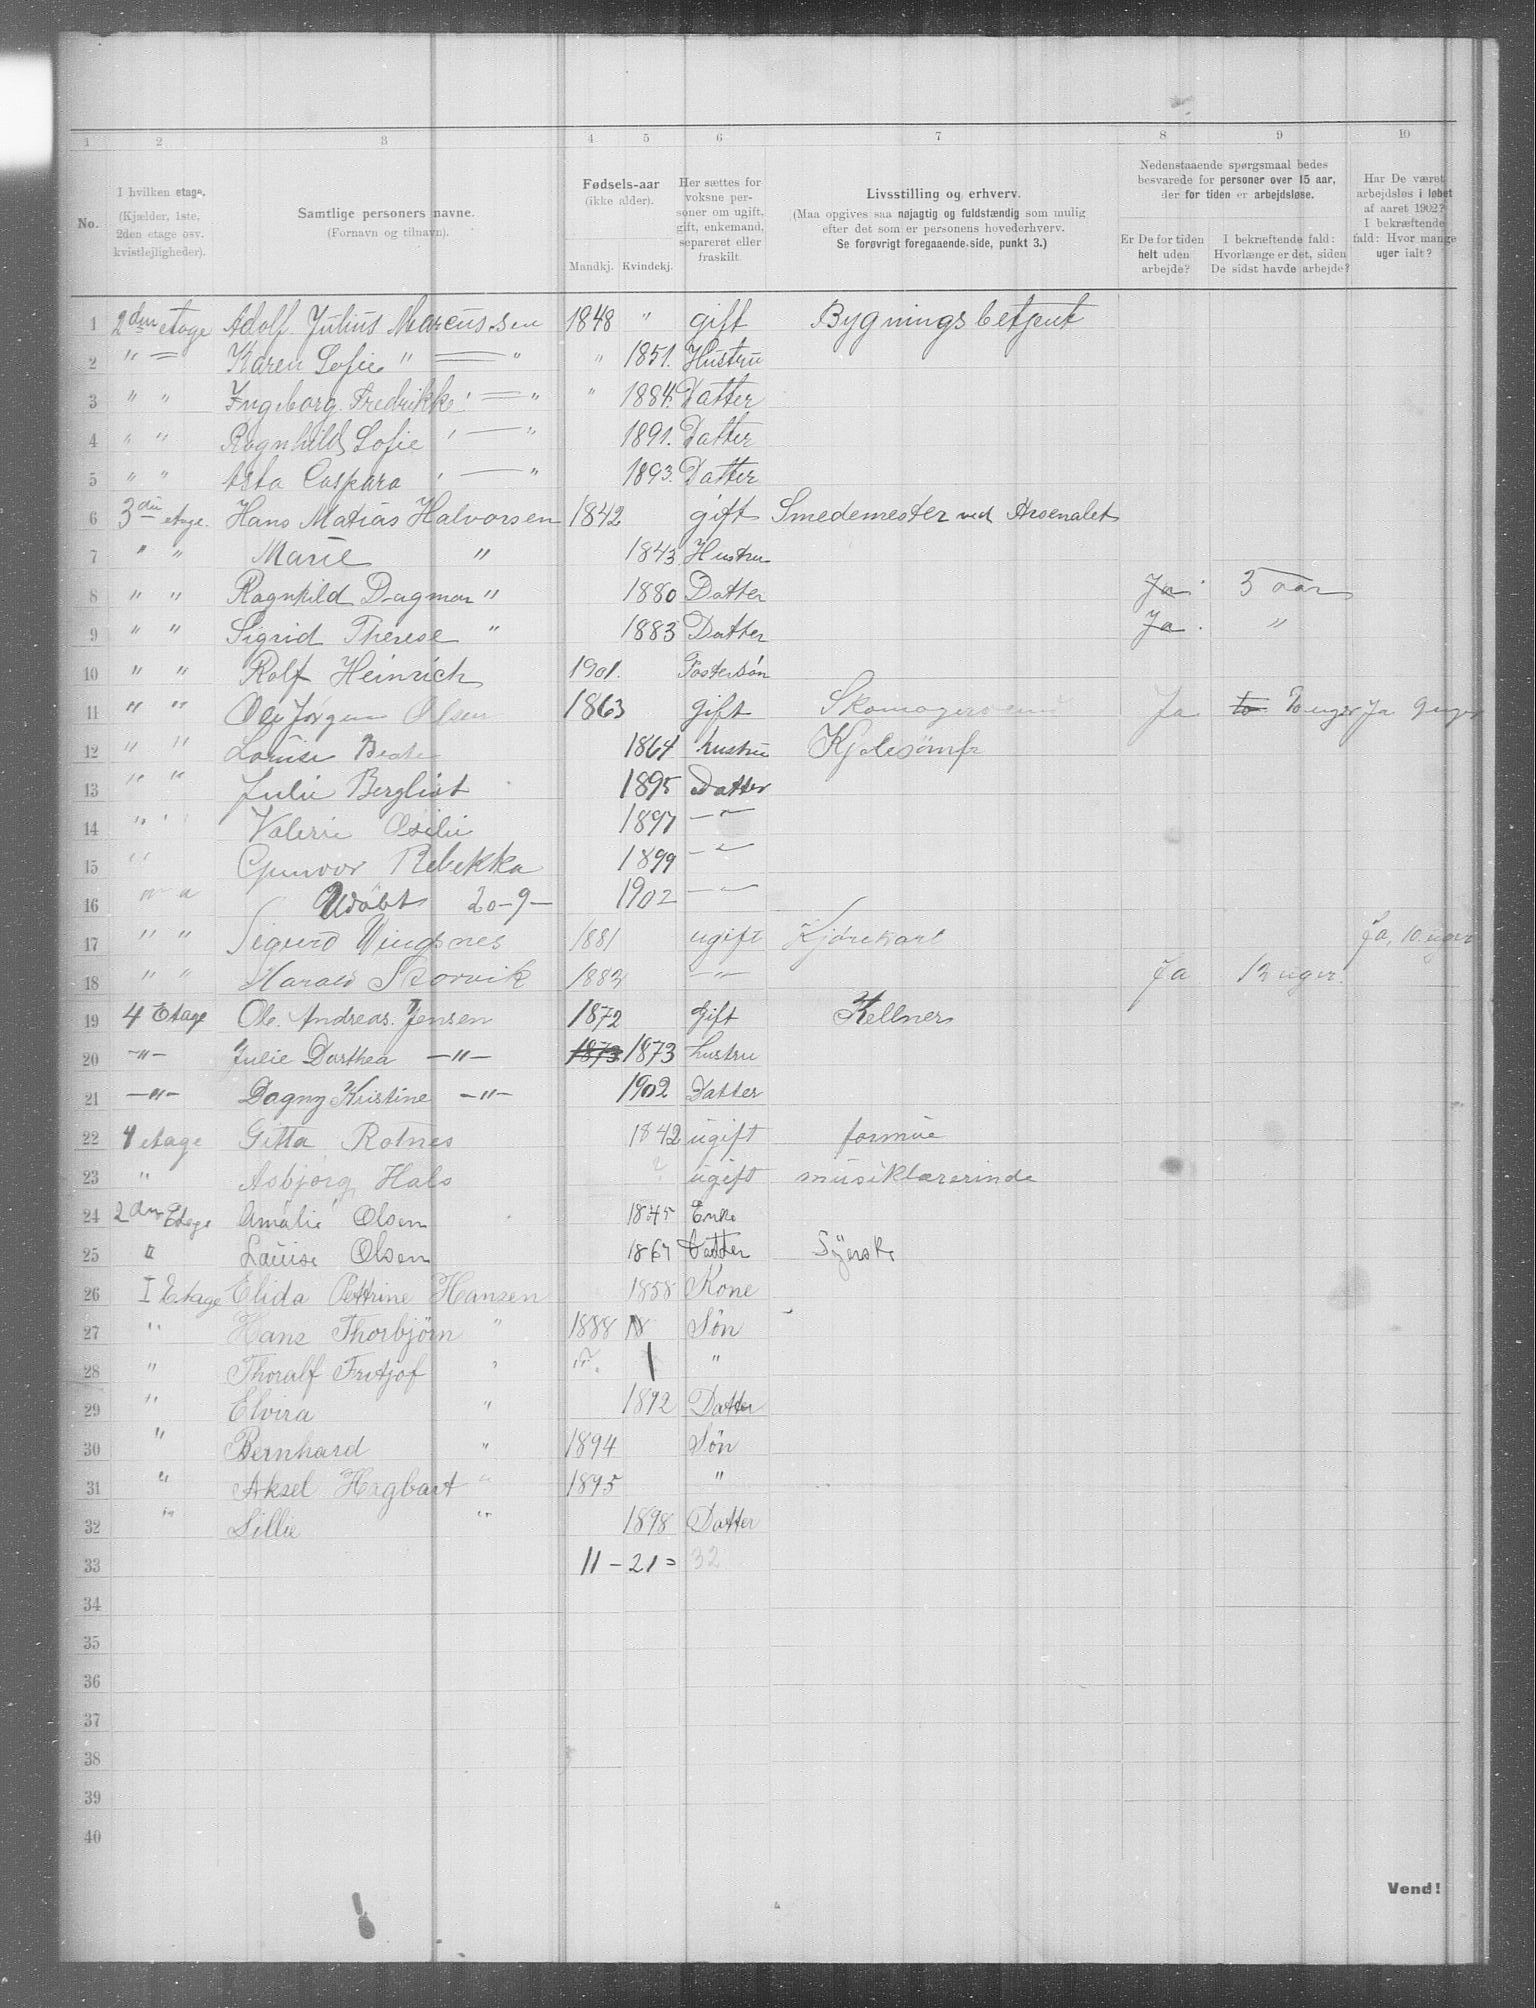 1 2 3 4 5 6 7 8 9 10
No. I hvilken etage. (Kjælder, 1ste, 2den etage osv. kvistlejligheder). Samtlige personers navne. (Fornavn og tilnavn). Fødsels-aar (ikke alder). Mandkj. Kvindekj. Her sættes for voksne personer om ugift, gift, enkemand, separeret eller fraskilt. Livsstilling og erhverv. (Maa opgives saa nøjagtig og fuldstændig som mulig efter det som er personens hovederhverv. Se forøvrigt foregaaende side, punkt 3.) Nedenstaaende spørgsmaal bedes besvarede for personer over 15 aar, der for tiden er arbejdsløse. Er De for tiden helt uden arbejde? I bekræftende fald: Hvorlænge er det, siden De sidst havde arbejde? Har De været arbejdsløs i løbet af aaret 1902? I bekræftende fald: Hvor mange uger ialt?
1 2den etage Adolf Julius Marcussen 1848 " gift Bygningsbetjent
2 " = Karen Sofie " = " " 1851. Hustru
3 " " Ingeborg Fredrikke " = " " 1884. Datter
4 " " Ragnhild Sofie " — " 1891. Datter
5 " " Asta Caspara " — " 1893. Datter
6 3die etage. Hans Matias Halvorsen 1842 gift Smedemester ved Arsenalet
7 " " Marie " 1843 Hustru
8 " " Ragnhild Dagmar " 1880 Datter Ja 3 aar
9 " " Sigrid Therese " 1883 Datter Ja. "
10 " " Rolf Heinrich 1901. Fostersön
11 " " Ole Jörgen Olsen 1863 gift Ja uger Ja uger
12 " " Louise Beate 1864 hustru Kjolesömr
13 " " Julie Bergliot 1895 Datter
14 " " Valerie 1897 — " —
15 " Gunvor Rebekka 1899 — " —
16 " " Udöbt 20-9- 1902 — " —
17 " " Sigurd Vingsnes 1881 ugift Kjörekarl Ja, 10. uger
18 " " Harald Storvik 1883 — " — Ja 13 uger.
19 4 Etage Ole. Andreas. Jensen 1872 Gift Kellner
20 —"— Julie Dorthea —"— 1873 1873 hustru
21 —"— Dagny Kristine —"— 1902 Datter
22 4 etage Gitta Rotnes 1842 ugift formue
23 " Asbjörg Hals ? ugift musiklærerinde
24 2den Etage Amalie Olsen 1845 Enke
25 " Louise Olsen 1867 Datter Syerske
26 I Etage Elida Pettrine Hansen 1858 Kone
27 " Hans Thorbjörn " 1888 Sön
28 " Thoralf Fritjof " "
29 " Elvira " 1892 Datter
30 " Bernhard " 1894 Sön
31 " Aksel Hagbart " 1895 "
32 " Lillie " 1898 Datter
33 11 - 21 = 32
34
35
36
37
38
39
40
Vend!